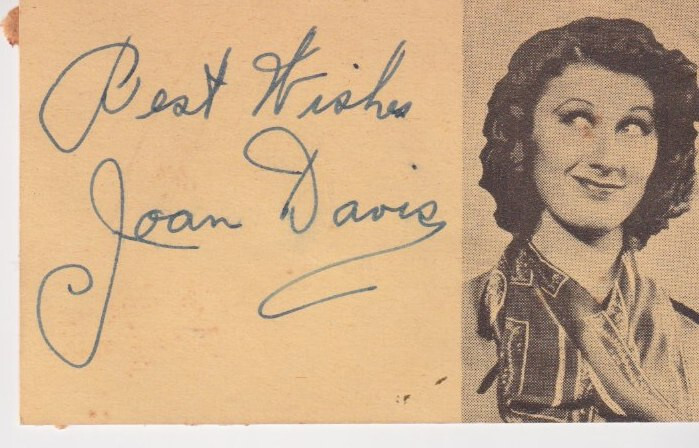 Best Wishes
Joan Davis